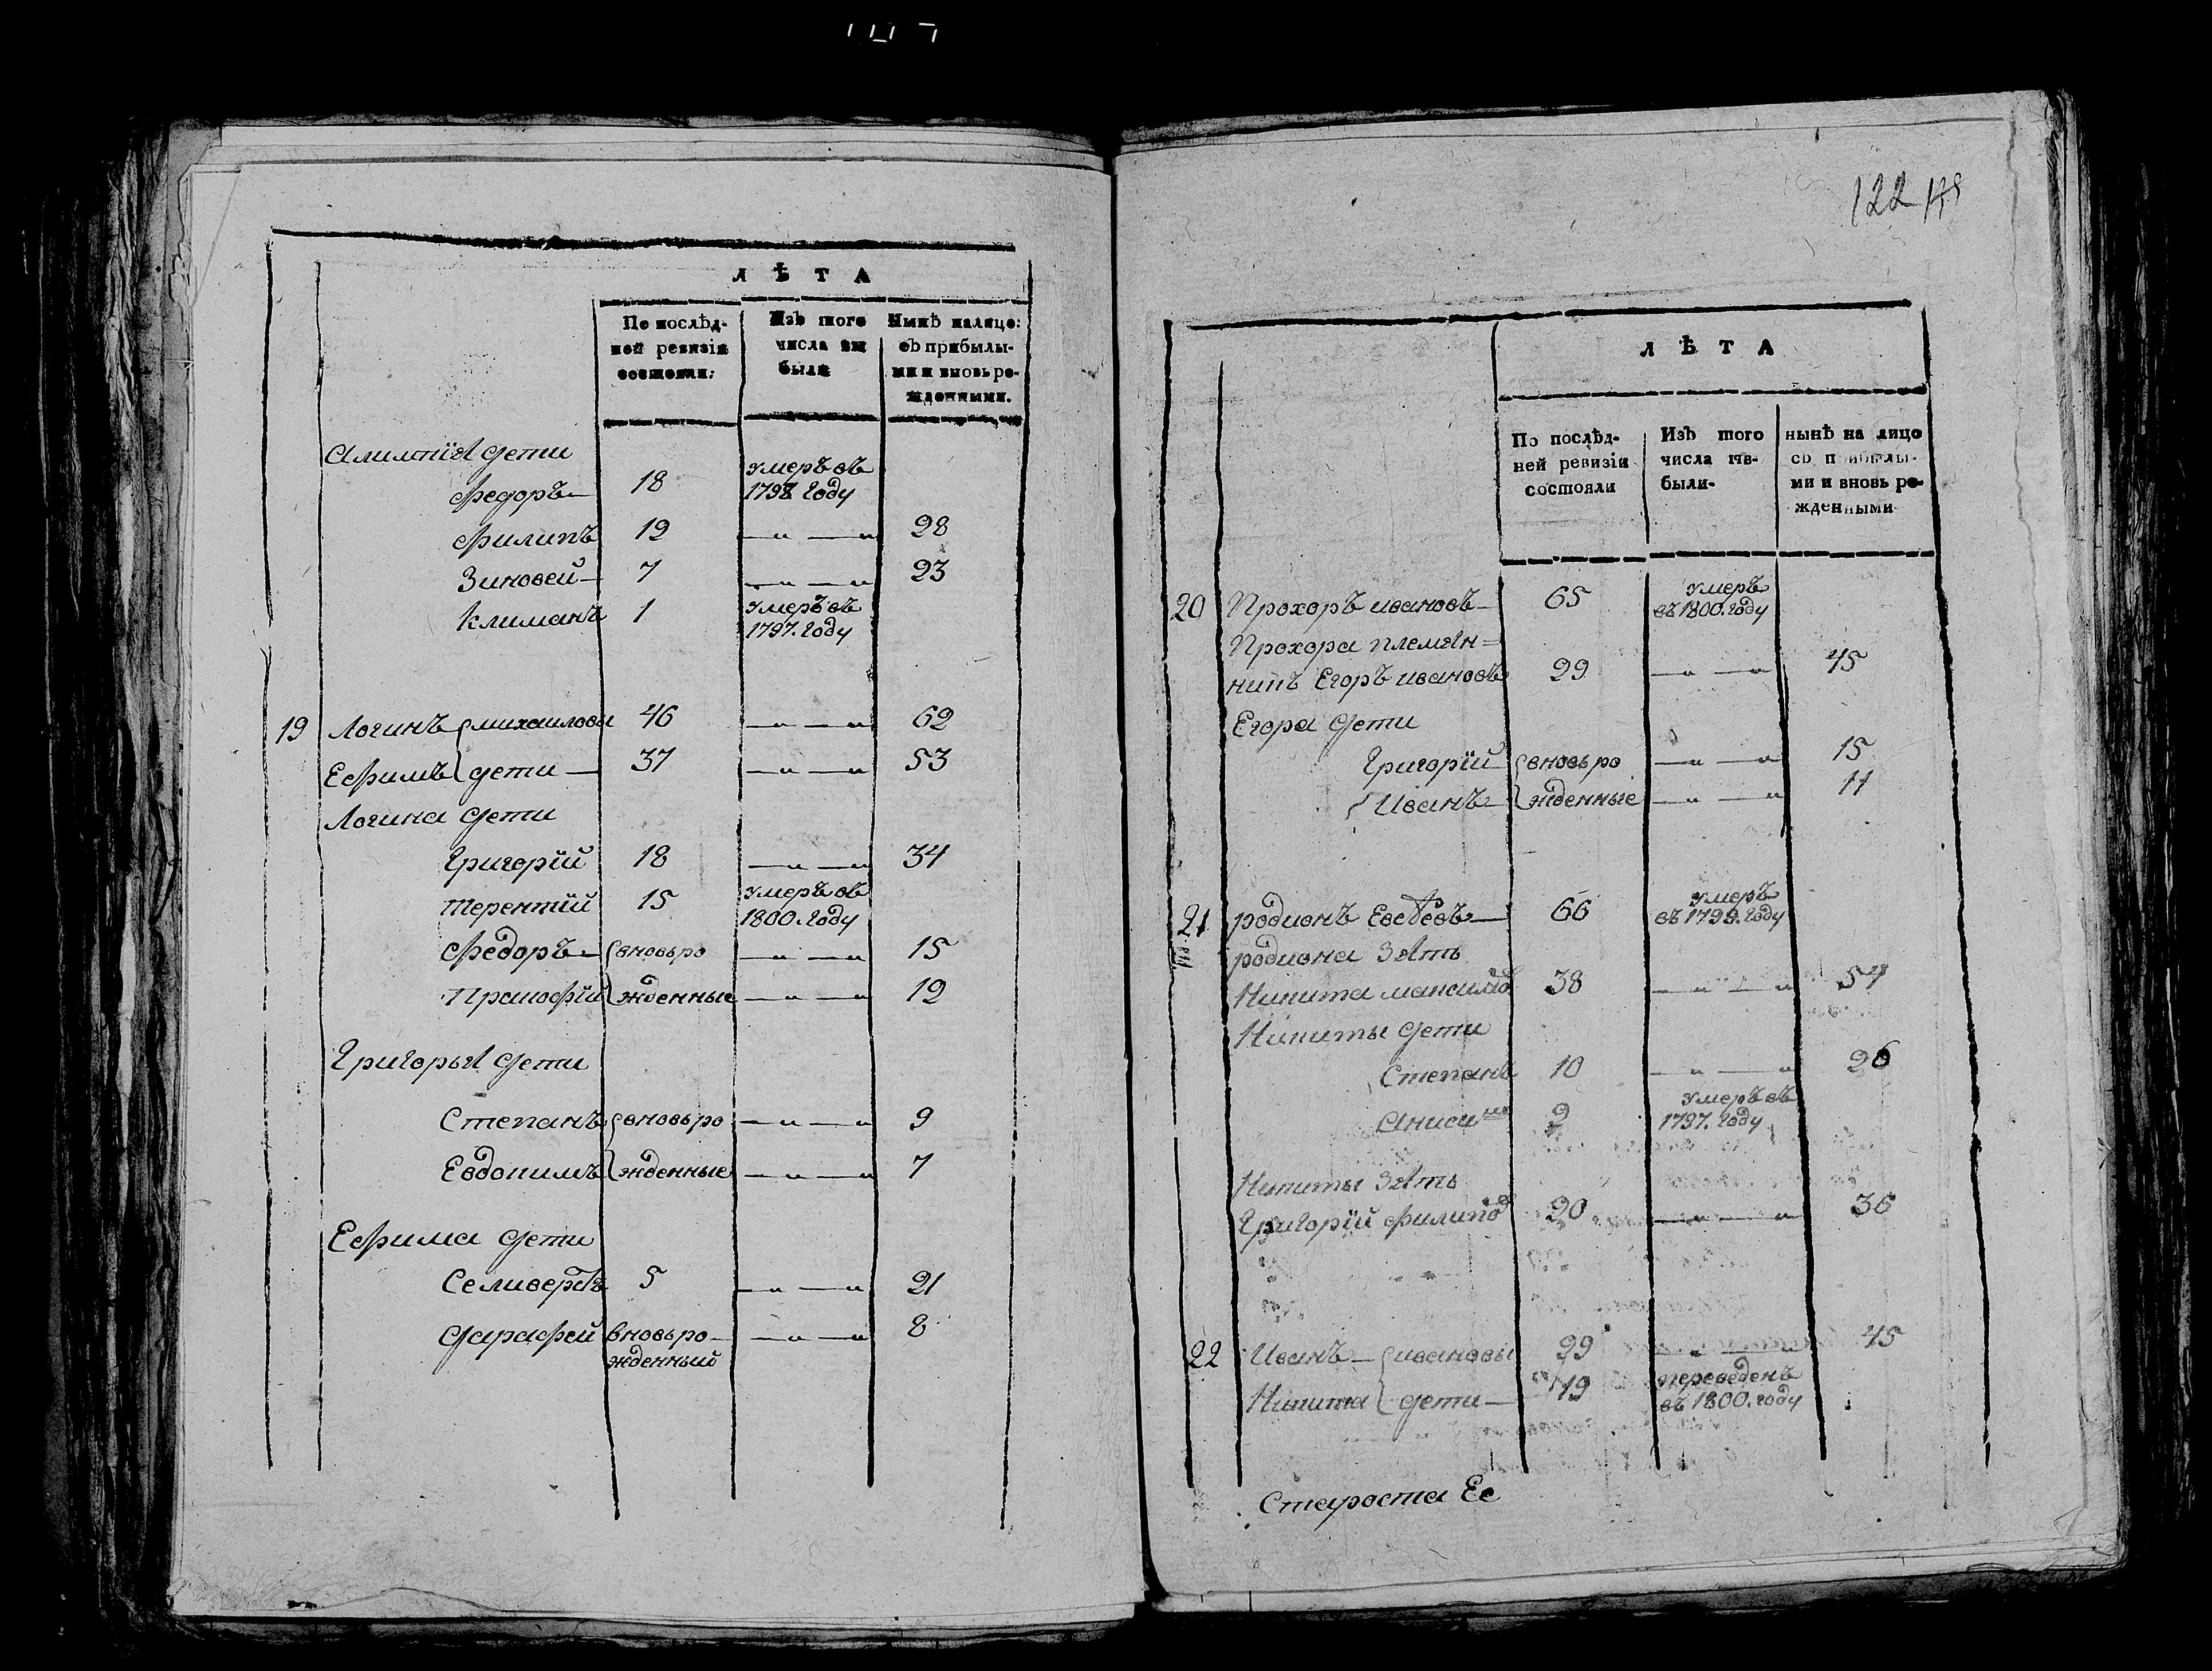 ЛѢТА
По послѣд-
ней ревизіи
состояли:
Изъ того
числа вы
было
Нынѣ налицо:
съ прибылы-
ми и вновь ро-
жденными.
Алимпїя дети
Федоръ 18 умеръ въ
1798 году
Филипъ 19 —"—" 28
Зиновей 7 —"—" 23
Климанъ 1 умеръ въ
1797. году
19 Логинъ михаиловы 46 —"—" 62
Ефимъ дети 37 —"—" 53
Логина дети
Григорїй 18 —"—" 34
Терентїй 15 умеръ въ
1800. году
Федоръ вновь ро —"—" 15
Пракофїй жденные —"—" 12
Григорья дети
Степанъ вновь ро —"—" 9
Евдокимъ жденные —"—" 7
Ефима дети
Селиверстъ 5 —"—" 21
Дарафей вновь ро- —"—" 8
жденный
122
ЛѢТА
По послѣд-
ней ревизіи
состояли
Изъ того
числа
были-
нынѣ на лицо
съ прибылы-
ми и вновь ро-
жденными
20 Прохоръ ивановъ 65 умеръ
въ 1800. году
Прохора племян=
никъ Егоръ ивановъ 29 —"—" 45
Егора дети
Григорїй вновь ро —"—" 15
Иванъ жденные —"—" 11
21 родионъ 66 умеръ
въ 1799. году
родиона зять
Никита максимов 38 —"—" 54
Никиты дети
Степанъ 10 —"—" 26
Анисим 2 умеръ въ
1797. году
Никиты зять
Григорїй филипов 20 —"—" 36
22 Иванъ ивановы 29 —"—" 45
Никита дети 19 переведенъ
въ 1800. году
Староста Ее